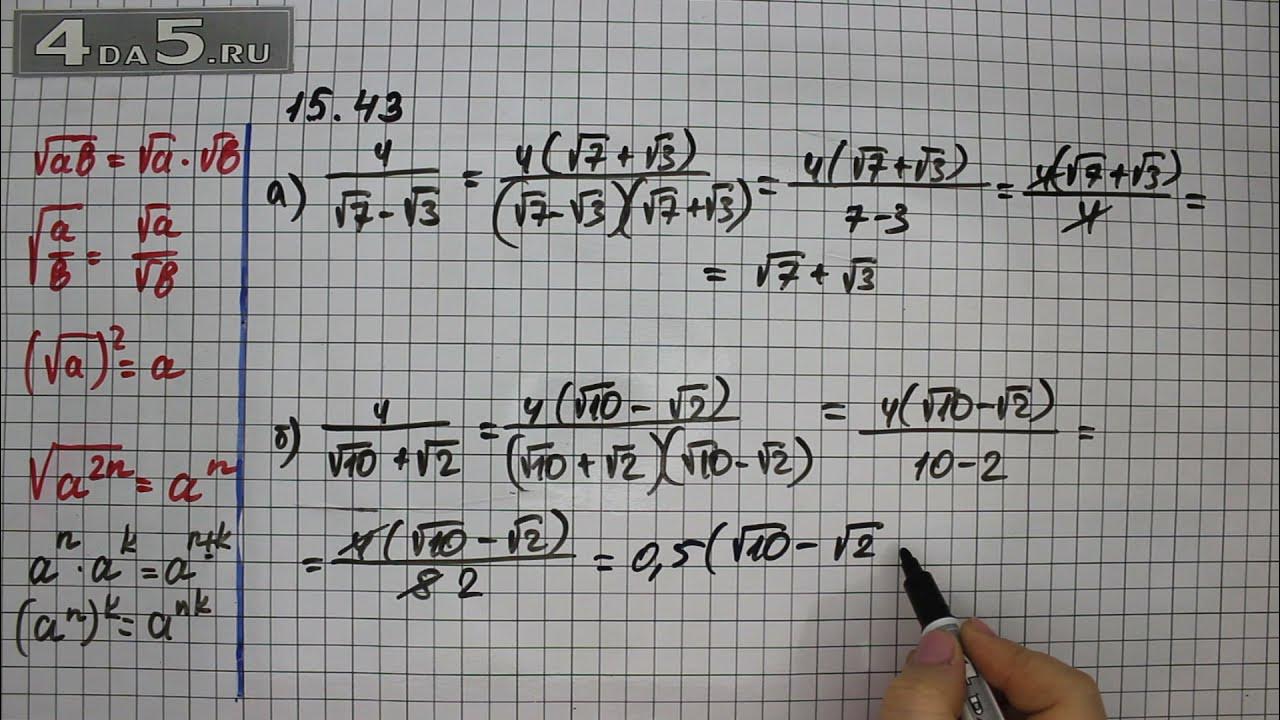 4DA5.RU
15.43
√ab = √a · √b
√(a/b) = √a/√b
(√a)² = a
√(a²ⁿ) = aⁿ
aⁿ · aᵏ = aⁿ⁺ᵏ
(aⁿ)ᵏ = aⁿᵏ
а) 4/(√7 - √3) = 4(√7 + √3)/((√7 - √3)(√7 + √3)) = 4(√7 + √3)/(7 - 3) = 4(√7 + √3)/4 =
= √7 + √3
б) 4/(√10 + √2) = 4(√10 - √2)/((√10 + √2)(√10 - √2)) = 4(√10 - √2)/(10 - 2) =
= 4(√10 - √2)/8 2 = 0,5(√10 - √2